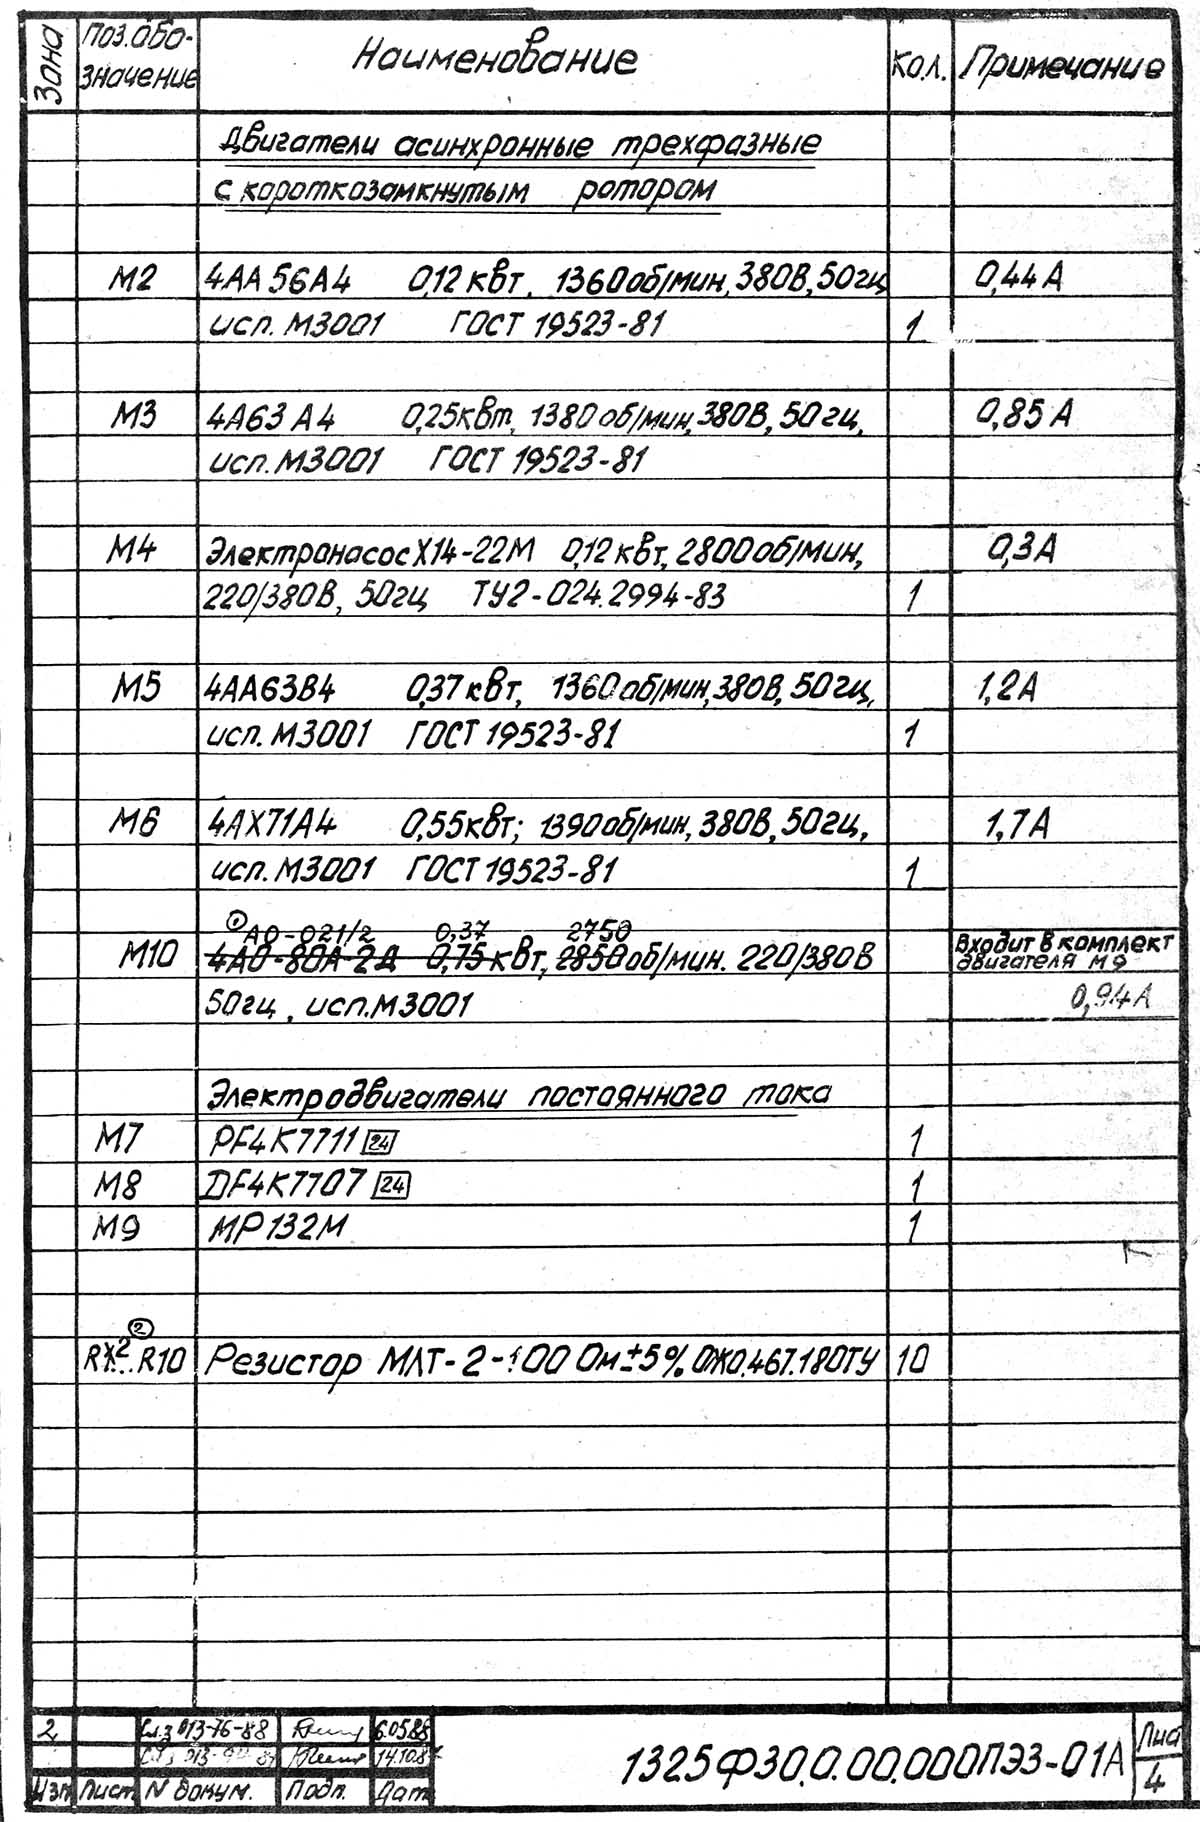 Зона Поз.обо- Наименование Кол. Примечание
значение
Двигатели асинхронные трехфазные
с короткозамкнутым ротором
М2 4АА56А4 0,12 квт, 1360об/мин, 380В, 50гц 0,44А
исп. М3001 ГОСТ 19523-81 1
М3 4А63А4 0,25квт, 1380об/мин, 380В, 50гц, 0,85А
исп. М3001 ГОСТ 19523-81
М4 Электронасос Х14-22М 0,12 квт, 2800об/мин, 0,3А
220/380В, 50гц ТУ2-024.2994-83 1
М5 4АА63В4 0,37квт, 1360об/мин, 380В, 50гц, 1,2А
исп. М3001 ГОСТ 19523-81 1
М6 4АХ71А4 0,55квт; 1390об/мин, 380В, 50гц, 1,7А
исп. М3001 ГОСТ 19523-81 1
① АО-021/2 0,37 2750
М10 4АО-80А-2Д 0,75 квт, 2850об/мин. 220/380В Входит в комплект
двигателя М9
50гц, исп.М3001 0,94А
Электродвигатели постоянного тока
М7 PF4K7711 24 1
М8 DF4K7707 24 1
М9 МР132М 1
②
2
R1...R10 Резистор МЛТ-2-100 Ом±5% ОЖ0.467.180ТУ 10
2 013-76-88 6.05.88
14.10.8
Изм Лист N докум. Подп. Дат
1325Ф30.0.00.000ПЭ3-01А
Лис
4